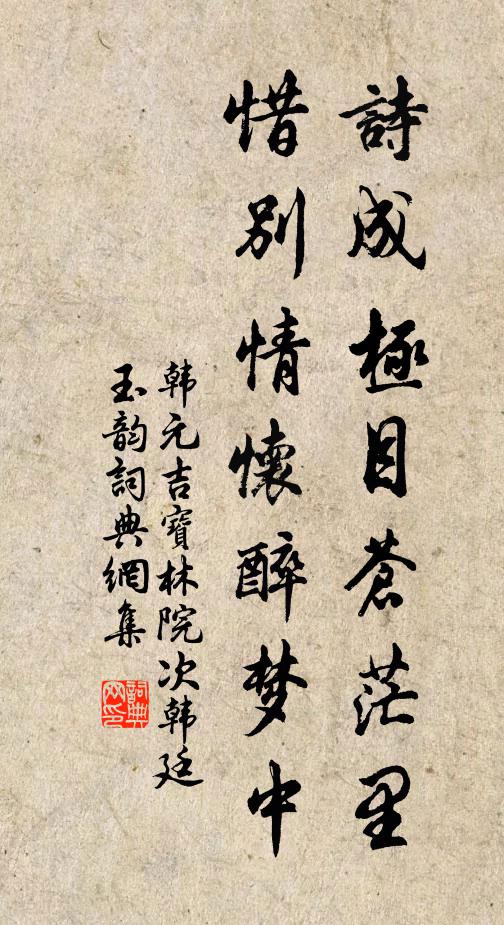 詩成極目蒼茫里
惜別情懷醉梦中
韩元吉寶林院次韩廷
玉韵詞典網集
詞典网印